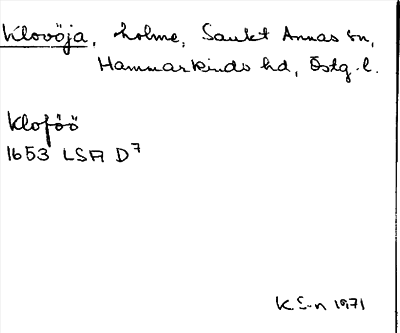 Klovöja, holme, Sankt Annas sn,
Hammarkinds hd, Östg. l.
Kloföö
1653 LSA D7
K S-n 1971